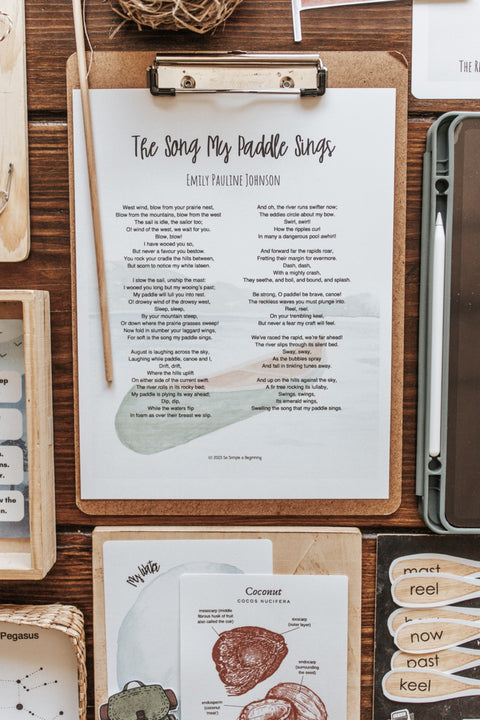 The Song My Paddle Sings
Emily Pauline Johnson
West wind, blow from your prairie nest,
Blow from the mountains, blow from the west
The sail is idle, the sailor too;
O! wind of the west, we wait for you.
Blow, blow!
I have wooed you so,
But never a favour you bestow.
You rock your cradle the hills between,
But scorn to notice my white lateen.
I stow the sail, unship the mast:
I wooed you long but my wooing's past;
My paddle will lull you into rest.
O! drowsy wind of the drowsy west,
Sleep, sleep,
By your mountain steep,
Or down where the prairie grasses sweep!
Now fold in slumber your laggard wings,
For soft is the song my paddle sings.
August is laughing across the sky,
Laughing while paddle, canoe and I,
Drift, drift,
Where the hills uplift
On either side of the current swift.
The river rolls in its rocky bed;
My paddle is plying its way ahead;
Dip, dip,
While the waters flip
In foam as over their breast we slip.
And oh, the river runs swifter now;
The eddies circle about my bow.
Swirl, swirl!
How the ripples curl
In many a dangerous pool awhirl!
And forward far the rapids roar,
Fretting their margin for evermore.
Dash, dash,
With a mighty crash,
They seethe, and boil, and bound, and splash.
Be strong, O paddle! be brave, canoe!
The reckless waves you must plunge into.
Reel, reel.
On your trembling keel,
But never a fear my craft will feel.
We've raced the rapid, we're far ahead!
The river slips through its silent bed.
Sway, sway,
As the bubbles spray
And fall in tinkling tunes away.
And up on the hills against the sky,
A fir tree rocking its lullaby,
Swings, swings,
Its emerald wings,
Swelling the song that my paddle sings.
© 2023 So Simple a Beginning
The R
My Water
Coconut
COCOS NUCIFERA
mesocarp (middle
fibrous husk of fruit
also called the coir)
exocarp
(outer layer)
endocarp
(surrounding
of the seed)
endosperm
(coconut
meat)
Pegasus
ep
s.
m.
w the
n.
mast
reel
now
past
keel